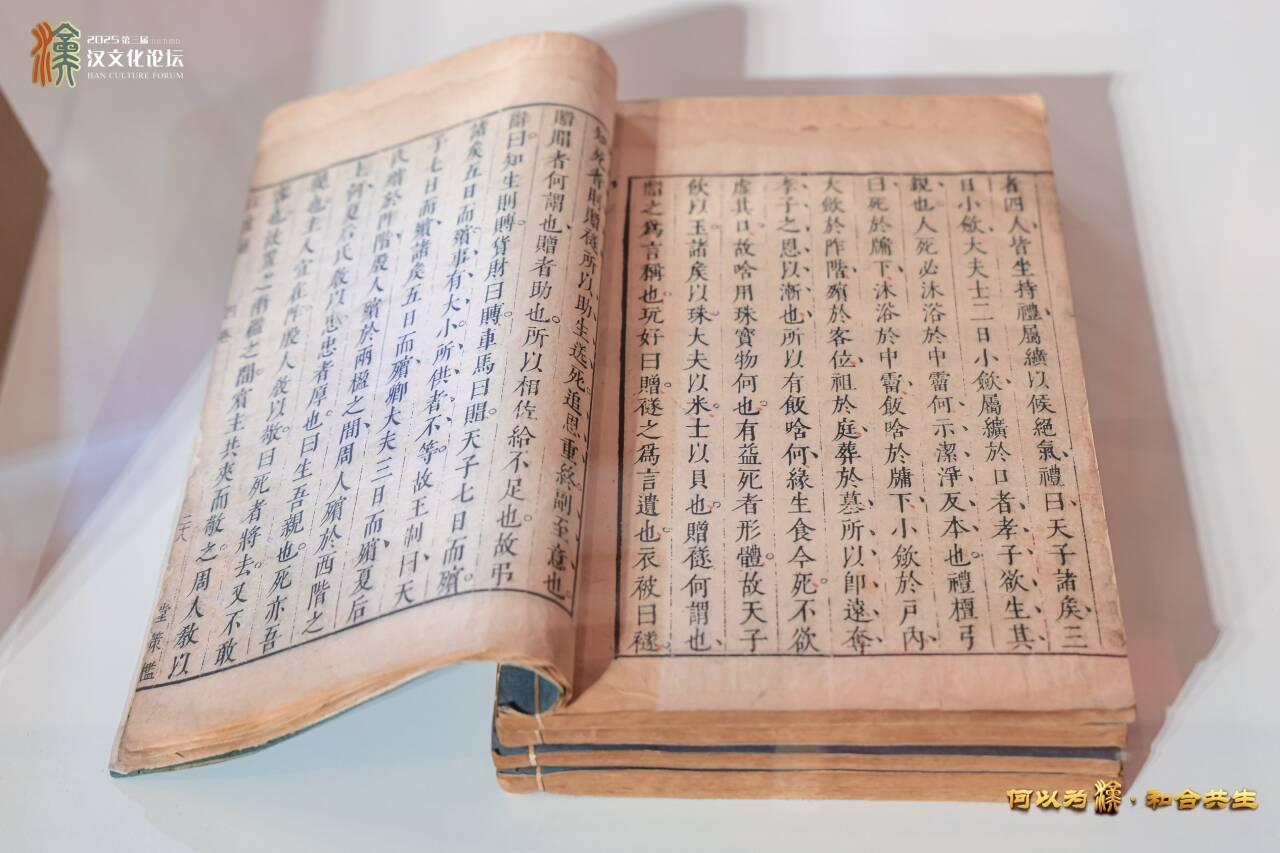 2025第三届
汉文化论坛
HAN CULTURE FORUM
者四人皆坐持禮屬纊以候絕氣禮曰天子諸矦三
日小斂大夫士二日小斂屬纊於口者孝子欲生其
親也人死必沐浴於中霤何示潔淨反本也禮檀弓
曰死於牗下沐浴於中霤飯唅於牗下小斂於戸內
大斂於阼階殯於客位祖於庭葬於墓所以卽遠奪
孝子之恩以漸也所以有飯唅何緣生食今死不欲
虛其口故唅用珠寶物何也有益死者形體故天子
飯以玉諸矦以珠大夫以米士以貝也贈襚何謂也
贈之爲言稱也玩好曰贈襚之爲言遺也衣被曰襚
知死者則贈襚所以助生送死追思重終副至意也
賵者何謂也贈者助也所以相佐給不足也故弔
辭曰知生則賻貨財曰賻車馬曰賵天子七日而殯
諸矦五日而殯事有大小所供者不等故王制曰天
子七日而殯諸矦五日而殯卿大夫三日而殯夏后
氏殯於阼階殷人殯於兩楹之間周人殯於西階之
上何夏后氏敎以忠忠者厚也曰生吾親也死亦吾
親也主人宜在阼殷人敎以敬曰死者將去又不敢
客也故置之兩楹之間賓主共夾而敬之周人敎以
二八
堂策檻
何以为漢·和合共生